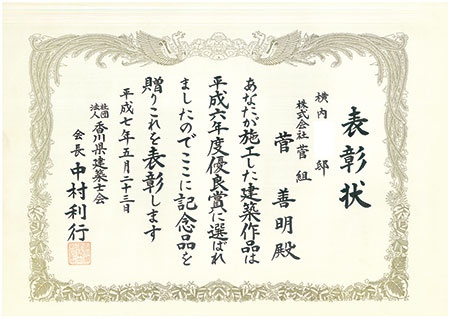 表彰状
横内 邸
株式会社 菅組
菅 善明殿
あなたが施工した建築作品は
平成六年度優良賞に選ばれ
ましたのでここに記念品を
贈りこれを表彰します
平成七年五月二十三日
社団法人 香川県建築士会
会長 中村利行